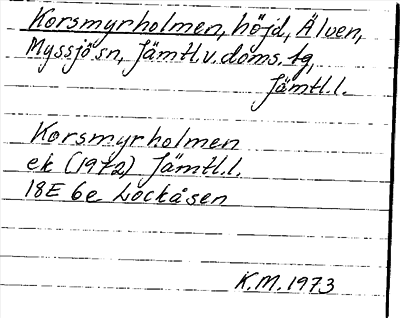 Korsmyrholmen, höjd, Älven,
Myssjö sn, Jämtl. v. doms. tg,
Jämtl. l.
Korsmyrholmen
ek (1972) Jämtl. l.
18E 6e Lockåsen
K.M. 1973